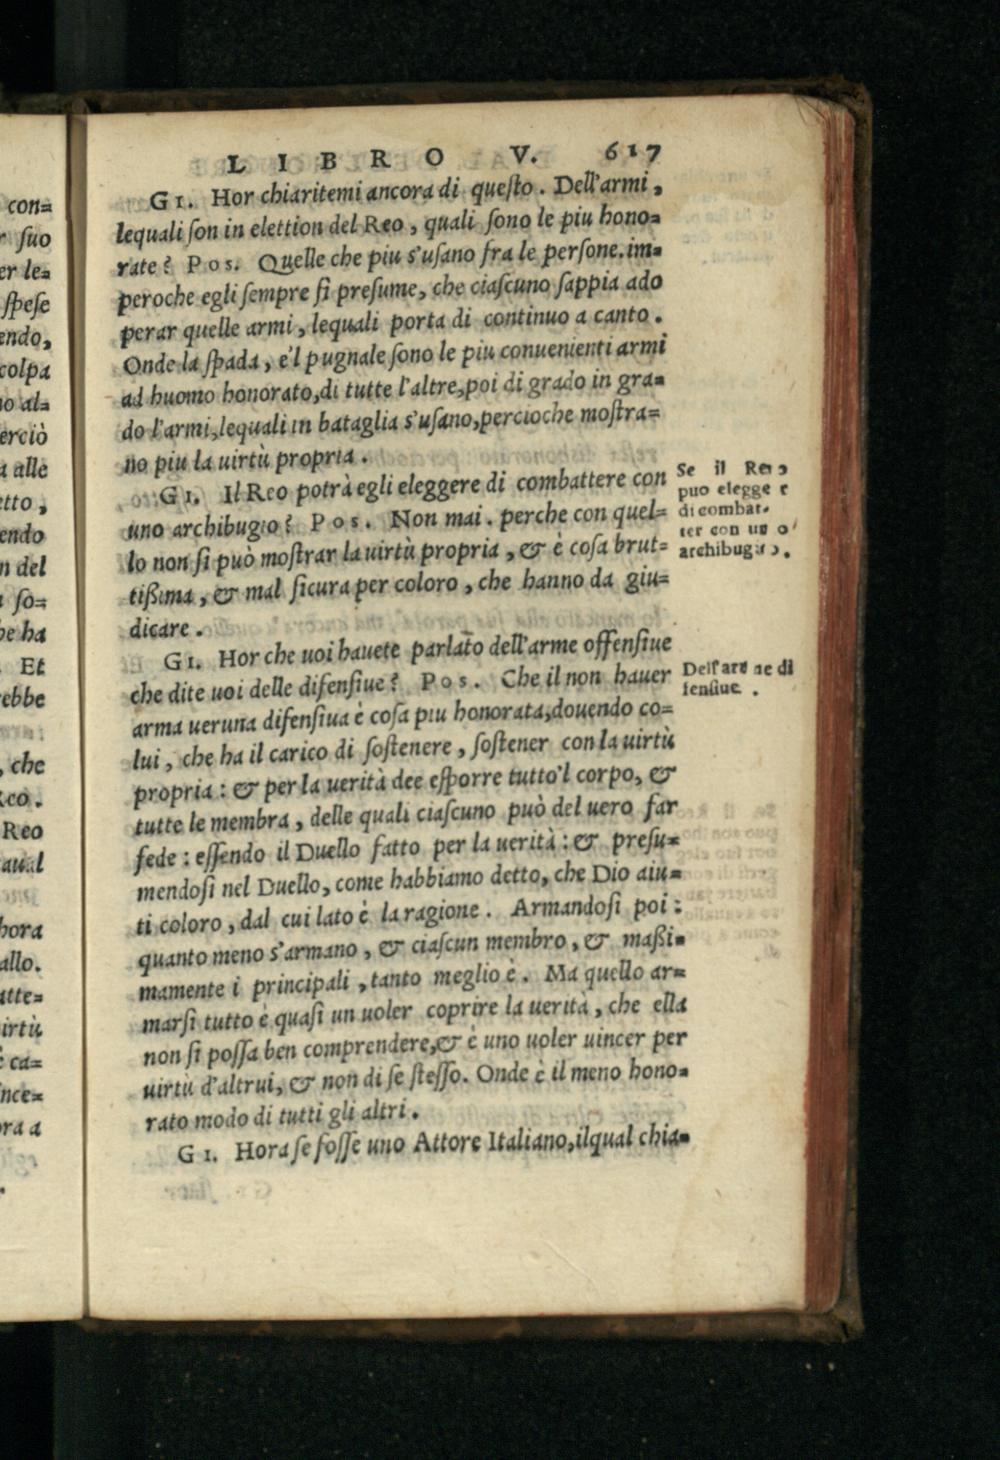 LIBRO V. 617
GI. Hor chiaritemi ancora di questo. Dell'armi,
lequali son in elettion del Reo, quali sono le piu hono=
rate? Pos. Quelle che piu s'usano fra le persone. im=
peroche egli sempre si presume, che ciascuno sappia ado
perar quelle armi, lequali porta di continuo a canto.
Onde la spada, e'l pugnale sono le piu conuenienti armi
ad huomo honorato, di tutte l'altre, poi di grado in gra=
do l'armi, lequali in bataglia s'usano, percioche mostra=
no piu la uirtù propria.
GI. Il Reo potrà egli eleggere di combattere con
uno archibugio? Pos. Non mai. perche con quel=
lo non si può mostrar la uirtù propria, & è cosa brut=
tißima, & mal sicura per coloro, che hanno da giu=
dicare.
GI. Hor che uoi hauete parlato dell'arme offensiue
che dite uoi delle difensiue? Pos. Che il non hauer
arma ueruna difensiua è cosa piu honorata, douendo co=
lui, che ha il carico di sostenere, sostener con la uirtù
propria: & per la uerità dee esporre tutto'l corpo, &
tutte le membra, delle quali ciascuno può del uero far
fede: essendo il Duello fatto per la uerità: & presu=
mendosi nel Duello, come habbiamo detto, che Dio aiu=
ti coloro, dal cui lato è la ragione. Armandosi poi:
quanto meno s'armano, & ciascun membro, & maßi=
mamente i principali, tanto meglio è. Ma quello ar=
marsi tutto è quasi un uoler coprire la uerità, che ella
non si possa ben comprendere, & è uno uoler uincer per
uirtù d'altrui, & non di se stesso. Onde è il meno hono=
rato modo di tutti gli altri.
GI. Hora se fosse uno Attore Italiano, ilqual chia=
Se il Reo
puo elegge e
di combat-
ter con un o
archibugio.
Dell'arme di
fensiue.
con=
suo
er le=
spese
endo,
colpa
no al=
erciò
a alle
etto,
endo
n del
so=
he ha
Et
ebbe
, che
Reo.
Reo
aual
hora
allo.
atte=
irtù
è ca=
ince=
ora a